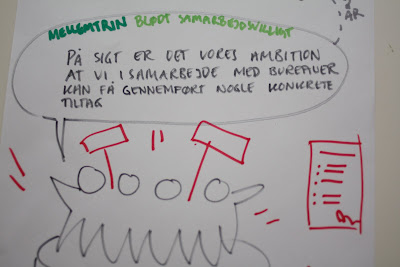 2
ÅR
MELLEMTRIN BLØDT SAMARBEJDSVILLIGT
PÅ SIGT ER DET VORES AMBITION
AT VI I SAMARBEJDE MED BUREAUER
KAN FÅ GENNEMFØRT NOGLE KONKRETE
TILTAG